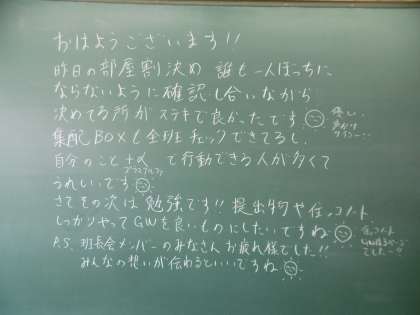 おはようございます!!
昨日の部屋割決め 誰も一人ぼっちに
ならないように確認し合いながら
決めてる所がステキで良かったです。
優しい
声かけ
集配BOXも全班チェックできてるし、
自分のこと+α で行動できる人が多くて
プラスアルファ
うれしいです
さてその次は勉強です!! 提出物や
しっかりやってGWを良いものにしたいですね
P.S. 班長会メンバーのみなさんお疲れ様でした!!
みんなの想いが伝わるといいですね